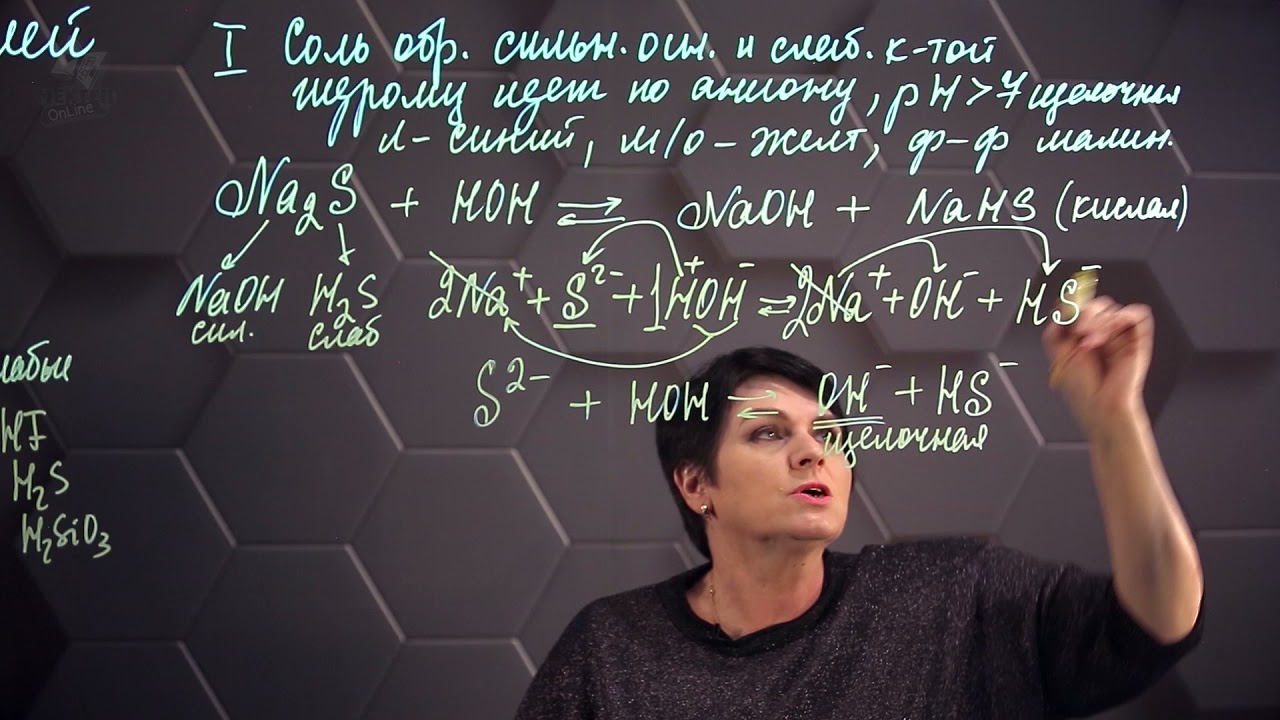 лей
I Соль обр. сильн. осн. и слаб. к-той
гидролиз идет по аниону, pH > 7 щелочная
л - синий, м/о - желт, ф-ф малин.
Na₂S + HOH ⇌ NaOH + NaHS (кислая)
NaOH H₂S
сил. слаб
2Na⁺ + S²⁻ + 1H⁺OH⁻ ⇌ 2Na⁺ + OH⁻ + HS⁻
S²⁻ + HOH ⇌ OH⁻ + HS⁻
щелочная
лабые
HF
H₂S
H₂SiO₃
OnLine